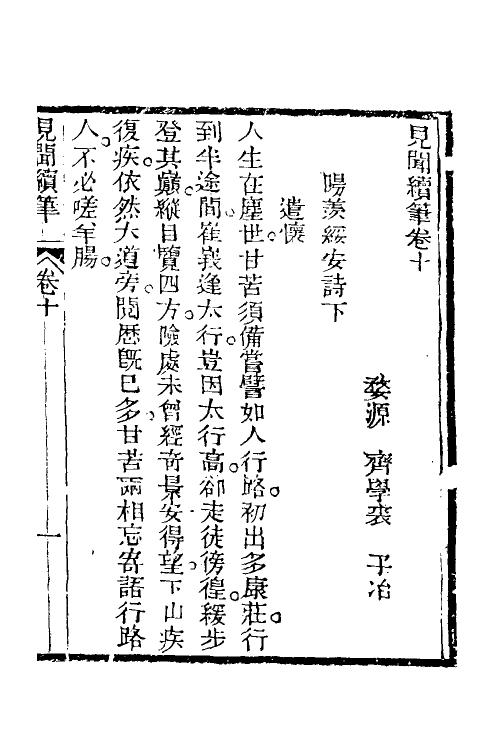 見聞續筆卷十
婺源　齊學裘　子冶
陽羨綏安詩下
遣懷
人生在塵世甘苦須備嘗譬如人行路初出多康莊行
到半途間崔嵬逢太行豈因太行高卻走徒徬徨緩步
登其巔縱目覽四方險處未曾經奇景安得望下山疾
復疾依然大道旁閱歷既已多甘苦兩相忘寄語行路
人不必嗟羊腸
見聞續筆　卷十　一